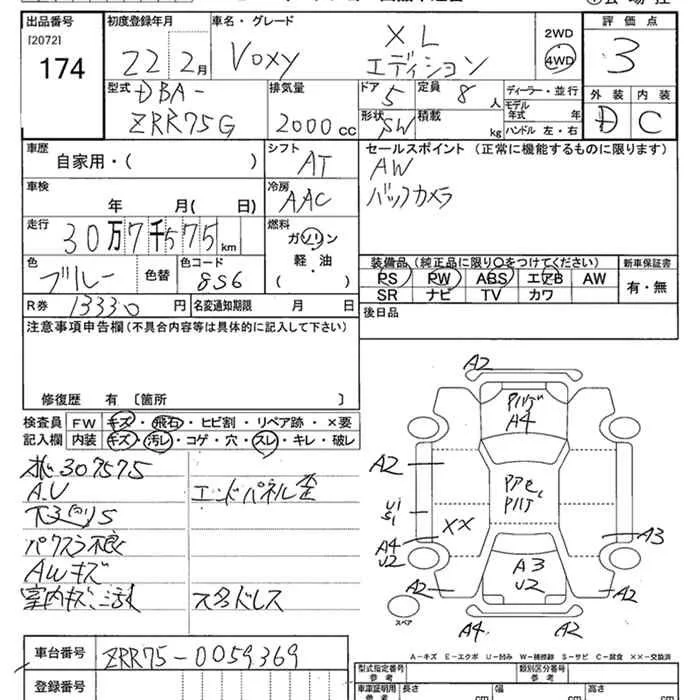 出品番号
[2072]
174
初度登録年月
22 2月
車名・グレード
Voxy
XL
エディション
2WD
4WD
評価点
3
外装 内装
D C
型式
DBA-
ZRR75G
排気量
2000cc
ドア
5
定員
8人
形状
SW
積載
kg
ディーラー・並行
モデル年式 年
ハンドル 左・右
車歴
自家用・( )
シフト
AT
セールスポイント (正常に機能するものに限ります)
AW
バックカメラ
車検
年 月( 日)
冷房
AAC
走行
30万7千575km
燃料
ガソリン
軽・油
( )
色
ブルー
色替
色コード
8S6
装備品 (純正品に限り○をつけてください)
PS PW ABS エアB AW
SR ナビ TV カワ
新車保証書
有・無
R券
13330円
名変通知期限 月 日
後日品
注意事項申告欄(不具合内容等は具体的に記入して下さい)
修復歴 有 〔箇所 〕
検査員
記入欄
FW キズ・飛石・ヒビ割・リペア跡・×要
内装 キズ・汚レ・コゲ・穴・スレ・キレ・破レ
307575
A.U
エンドパネル歪
下廻りS
パワスラ不良
AWキズ
室内キズ、汚れ
スタッドレス
A2
A4
A2
U1
S1
XX
A4
U2
A3
A3
U2
A2
A2
A4
A2
スペア
車台番号
ZRR75-0059369
登録番号
A-キズ E-エクボ U-凹み W-補修跡 S-サビ C-腐食 XX-交換済
型式指定番号
参考
類別区分番号
参考
車庫証明用
参考
長さ cm
幅 cm
高さ cm